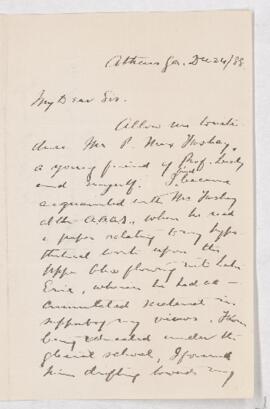 Athens Ga. Dec 24/88
My Dear Sir.
Allow me to introduce
Mr P. Max Foshay,
a young friend of Prof.
and myself. I first became
acquainted with Mr Foshay
at the A.A.A.S., when he read
a paper relating to my hypo-
thetical work upon the
upper Ohio flowing into Lake
Erie, wherein he had ac-
cumulated material in
support of my views.
being educated under the
glacial school, I found
him drifting towards my